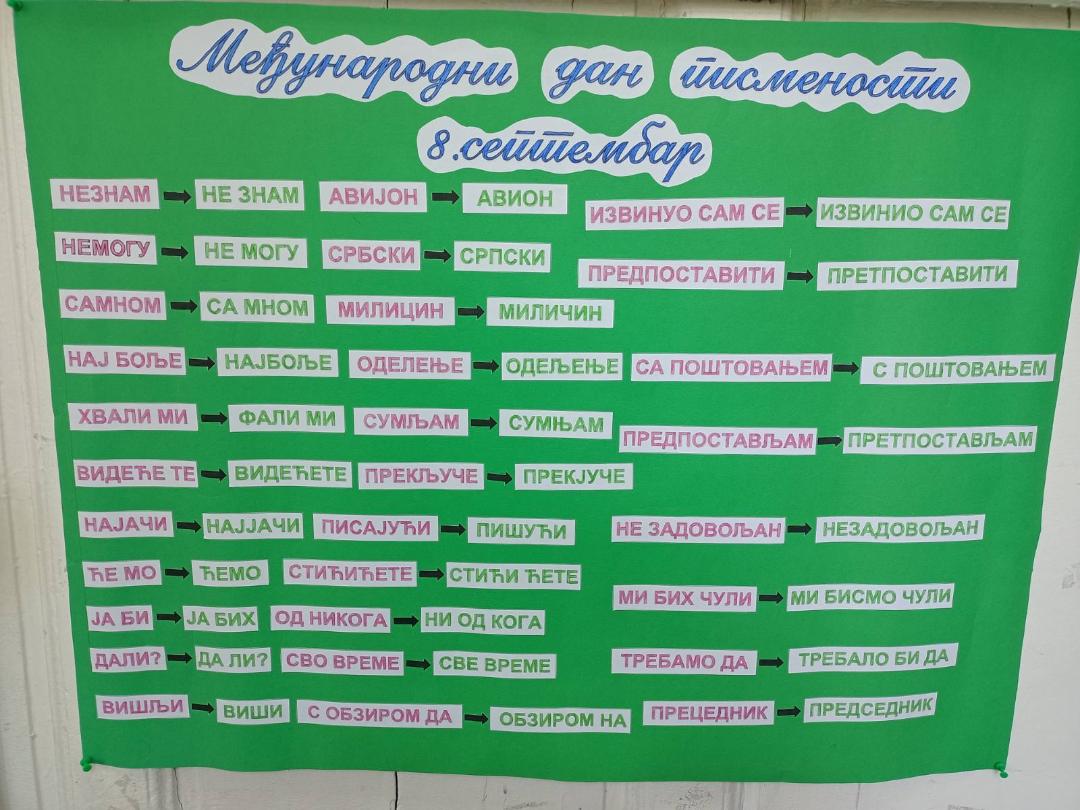 Међународни дан писмености
8.септембар
НЕЗНАМ → НЕ ЗНАМ АВИЈОН → АВИОН ИЗВИНУО САМ СЕ → ИЗВИНИО САМ СЕ
НЕМОГУ → НЕ МОГУ СРБСКИ → СРПСКИ ПРЕДПОСТАВИТИ → ПРЕТПОСТАВИТИ
САМНОМ → СА МНОМ МИЛИЦИН → МИЛИЧИН
НАЈ БОЉЕ → НАЈБОЉЕ ОДЕЛЕЊЕ → ОДЕЉЕЊЕ СА ПОШТОВАЊЕМ → С ПОШТОВАЊЕМ
ХВАЛИ МИ → ФАЛИ МИ СУМЉАМ → СУМЊАМ ПРЕДПОСТАВЉАМ → ПРЕТПОСТАВЉАМ
ВИДЕЋЕ ТЕ → ВИДЕЋЕТЕ ПРЕКЉУЧЕ → ПРЕКЈУЧЕ
НАЈАЧИ → НАЈЈАЧИ ПИСАЈУЋИ → ПИШУЋИ НЕ ЗАДОВОЉАН → НЕЗАДОВОЉАН
ЋЕ МО → ЋЕМО СТИЋИЋЕТЕ → СТИЋИ ЋЕТЕ МИ БИХ ЧУЛИ → МИ БИСМО ЧУЛИ
ЈА БИ → ЈА БИХ ОД НИКОГА → НИ ОД КОГА
ДАЛИ? → ДА ЛИ? СВО ВРЕМЕ → СВЕ ВРЕМЕ ТРЕБАМО ДА → ТРЕБАЛО БИ ДА
ВИШЉИ → ВИШИ С ОБЗИРОМ ДА → ОБЗИРОМ НА ПРЕЦЕДНИК → ПРЕДСЕДНИК